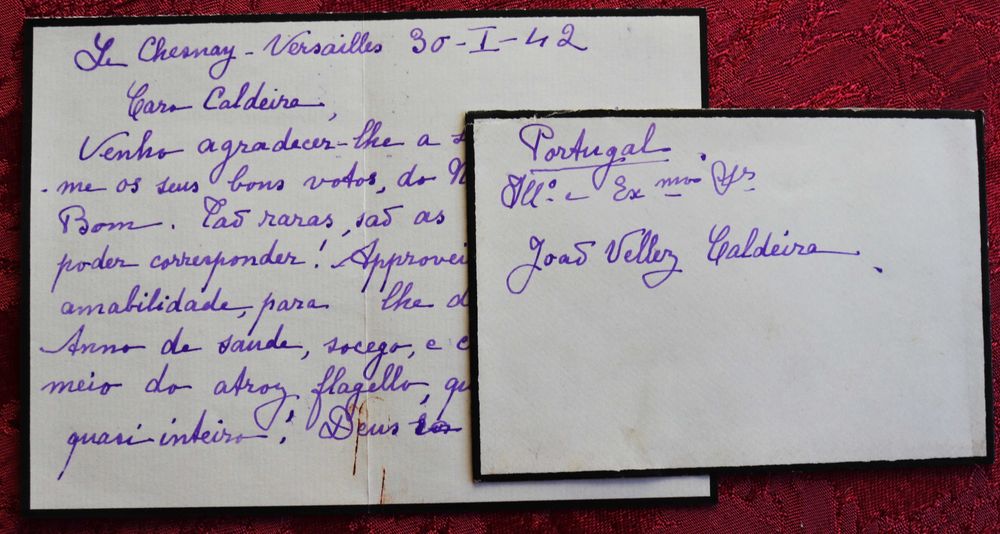 Le Chesnay - Versailles 30-I-42
Caro Caldeira,
Venho agradecer-lhe a s
-me os seus bons votos, do N
Bom. Taõ raras, saõ as
poder corresponder! Approvei
amabilidade, para lhe d
Anno de saude, socego, e c
meio do atroz flagello, qu
quasi inteiro! Deus
Portugal.
Ill.º e Ex.mo Sr.
Joaõ Vellez Caldeira.